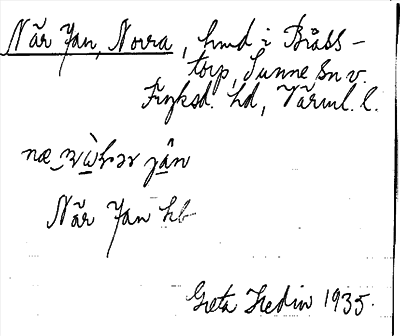 När Jan, Norra, hmd i Bråbs-
torp, Sunne sn v.
Fryksd. hd, Värml. l.
När Jan hb
Greta Hedin 1935.